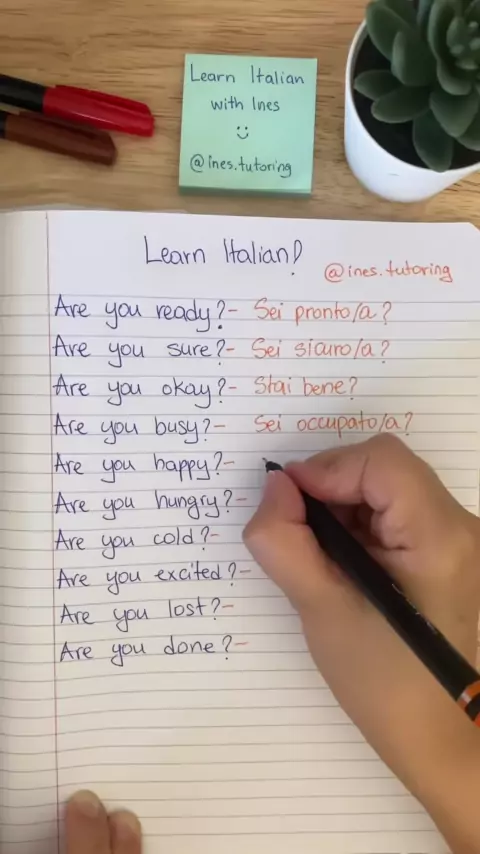 Learn Italian
with Ines
@ines.tutoring
Learn Italian!
@ines.tutoring
Are you ready?- Sei pronto/a?
Are you sure?- Sei sicuro/a?
Are you okay?- Stai bene?
Are you busy?- Sei occupato/a?
Are you happy?-
Are you hungry?-
Are you cold?-
Are you excited?-
Are you lost?-
Are you done?-